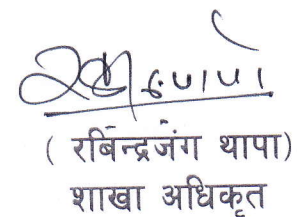 ( रबिन्द्रजंग थापा)
शाखा अधिकृत